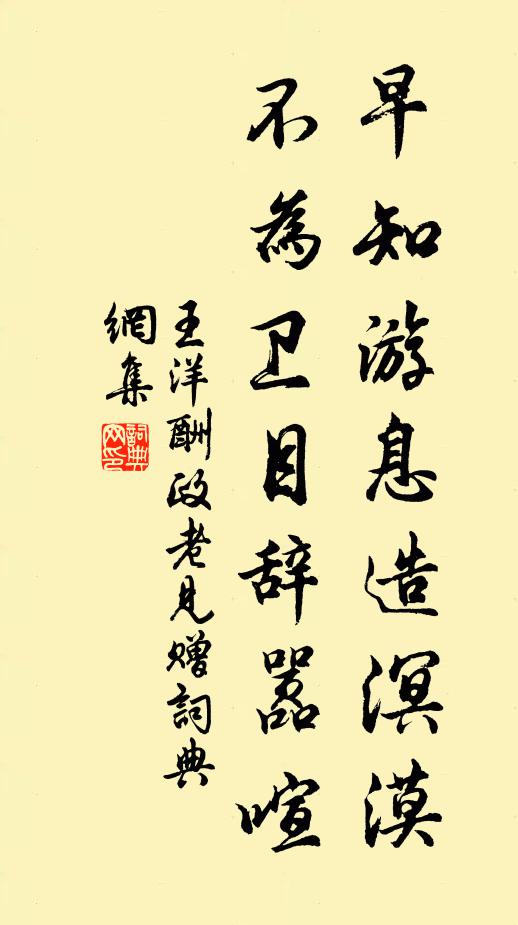 早知游息造溟漠
不為卫目辞嚣喧
王洋酬政老見贈詞典
網集
詞典網印